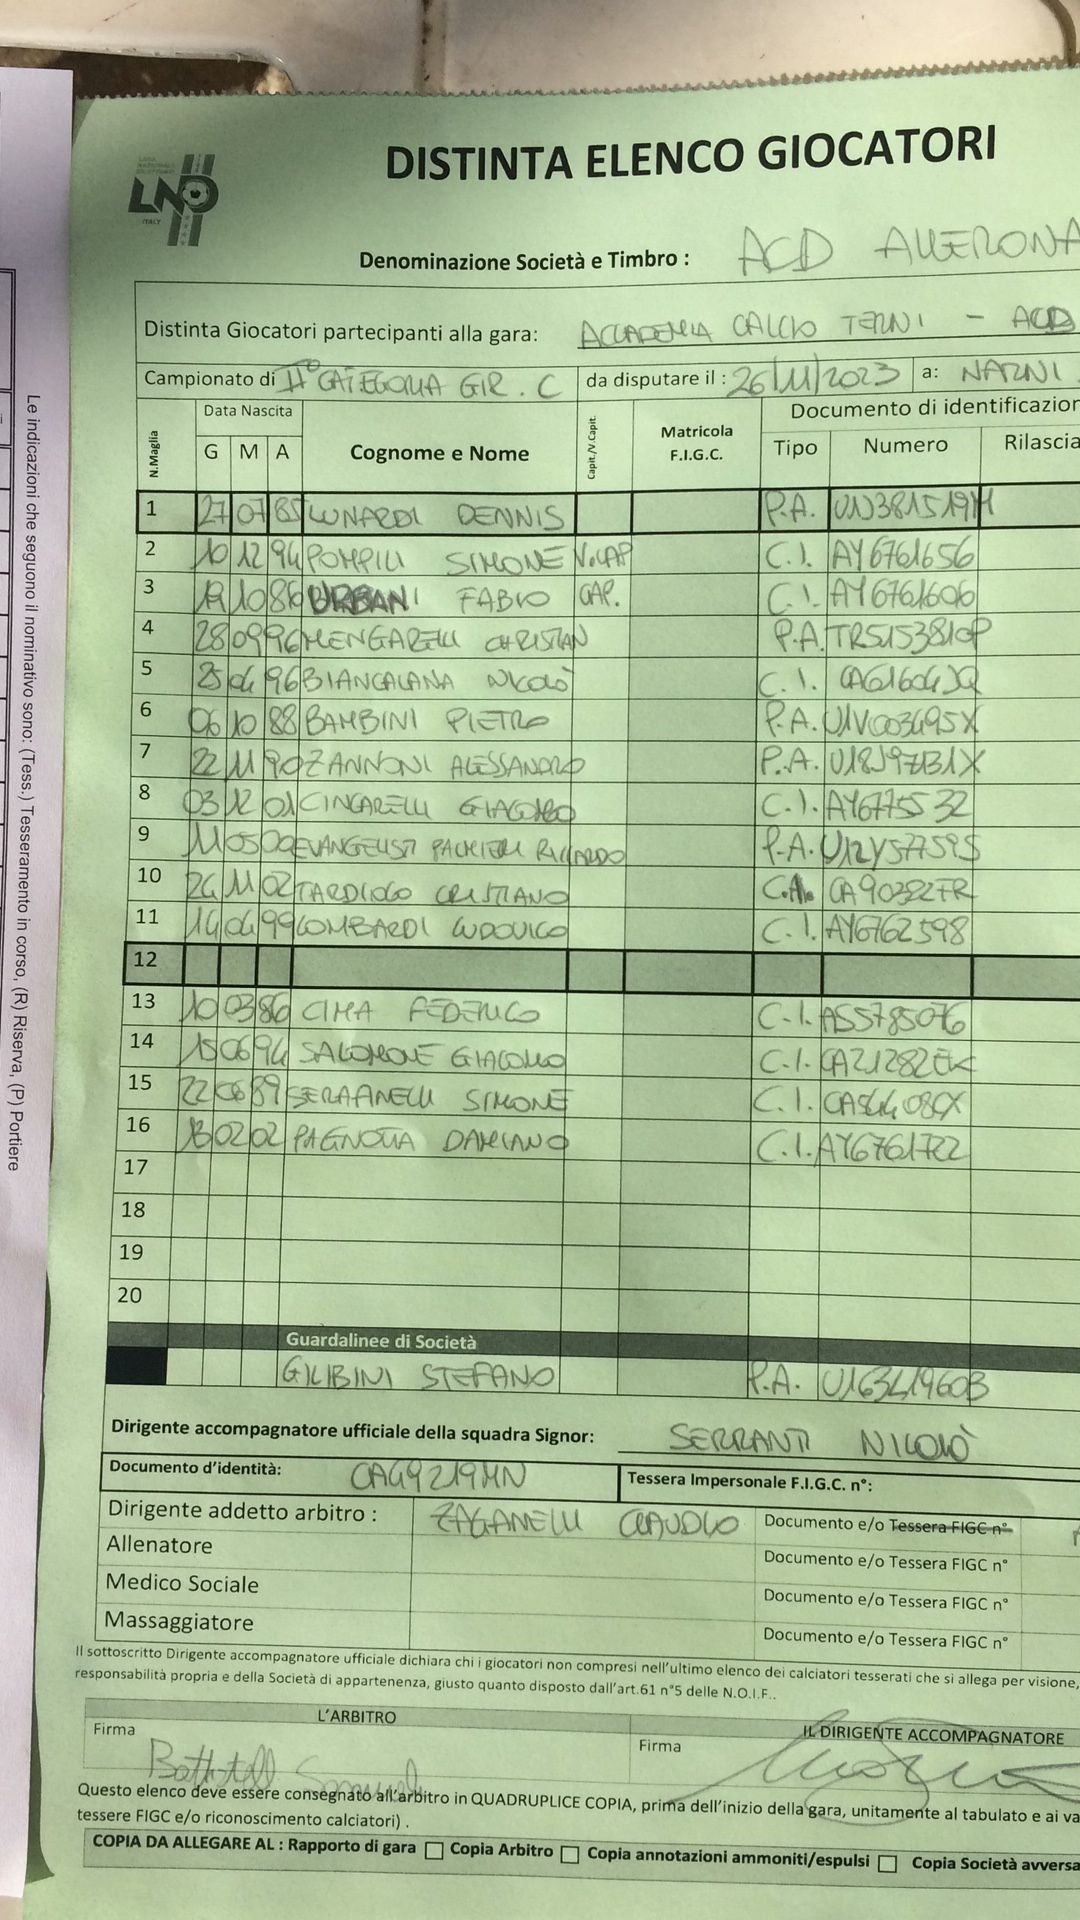 LND
ITALY
DISTINTA ELENCO GIOCATORI
Denominazione Società e Timbro : ACD ALLERONA
Distinta Giocatori partecipanti alla gara: ACCADEMIA CALCIO TERNI - ACD
Campionato di IIº CATEGORIA GIR. C da disputare il : 26/11/2023 a: NARNI
N.Maglia Data Nascita G M A Cognome e Nome Capit./V.Capit. Matricola F.I.G.C. Documento di identificazion Tipo Numero Rilascia
1 27 07 85 LUNARDI DENNIS P.A. U1J381519H
2 10 12 94 POMPILI SIMONE V.CAP C.I. AY6761656
3 19 10 86 URBANI FABIO CAP. C.I. AY6761606
4 28 09 96 MENGARELLI CHRISTIAN P.A. TR5153810P
5 25 04 96 BIANCALANA NICOLÒ C.I. CA61604JQ
6 06 10 88 BAMBINI PIETRO P.A. U1V003495X
7 22 11 90 ZANNONI ALESSANDRO P.A. U18J97131X
8 03 12 01 CINCARELLI GIACOMO C.I. AY6775532
9 11 05 00 EVANGELISTI PALMIERI RICCARDO P.A. U12Y577595
10 24 11 02 TARDIOLO CRISTIANO C.I. CA90382FR
11 14 04 99 LOMBARDI LUDOVICO C.I. AY6762598
12
13 10 03 86 CIMA FEDERICO C.I. AS5785076
14 15 06 94 SALOMONE GIACOMO C.I. CA21282EK
15 22 06 89 SERAFINELLI SIMONE C.I.
16 18 02 02 PAGNOTTA DAMIANO C.I. AY6761722
17
18
19
20
Guardalinee di Società
GILIBINI STEFANO P.A. U16341960B
Dirigente accompagnatore ufficiale della squadra Signor: SERRANTI NICOLÒ
Documento d'identità: CA49219MN Tessera Impersonale F.I.G.C. n°:
Dirigente addetto arbitro : ZAGANELLI CLAUDIO Documento e/o Tessera FIGC n°
Allenatore Documento e/o Tessera FIGC n°
Medico Sociale Documento e/o Tessera FIGC n°
Massaggiatore Documento e/o Tessera FIGC n°
Il sottoscritto Dirigente accompagnatore ufficiale dichiara chi i giocatori non compresi nell'ultimo elenco dei calciatori tesserati che si allega per visione,
responsabilità propria e della Società di appartenenza, giusto quanto disposto dall'art.61 n°5 delle N.O.I.F..
L'ARBITRO IL DIRIGENTE ACCOMPAGNATORE
Firma Firma
Questo elenco deve essere consegnato all'arbitro in QUADRUPLICE COPIA, prima dell'inizio della gara, unitamente al tabulato e ai va
tessere FIGC e/o riconoscimento calciatori) .
COPIA DA ALLEGARE AL : Rapporto di gara Copia Arbitro Copia annotazioni ammoniti/espulsi Copia Società avversa
Le indicazioni che seguono il nominativo sono: (Tess.) Tesseramento in corso, (R) Riserva, (P) Portiere